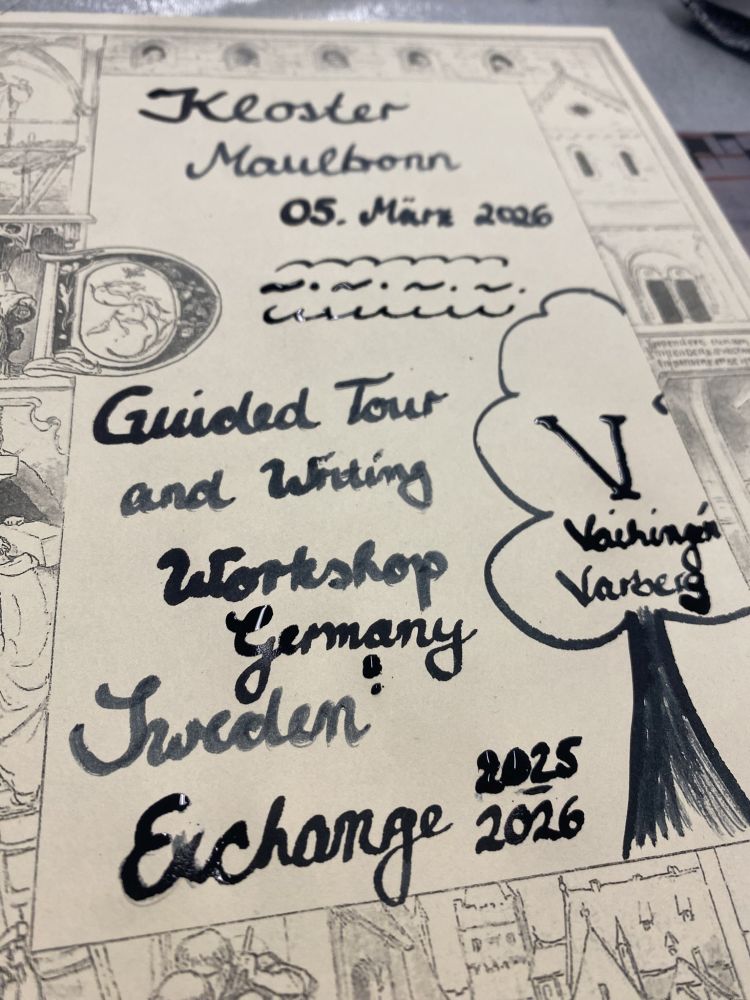 Kloster
Maulbronn
05. März 2026
Guided Tour
and Writing
Workshop
Germany
Sweden
Exchange
2025
2026
V
Vaihingen
Varberg